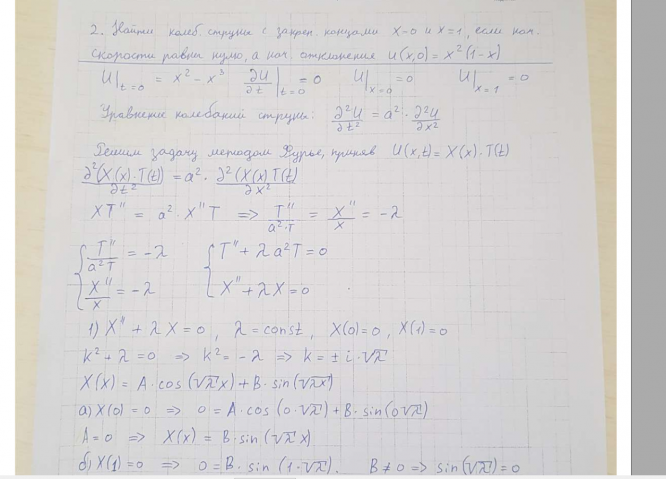 2. Найти колеб. струны с закреп. концами x=0 и x=1, если нач.
скорости равны нулю, а нач. отклонения U(x,0) = x²(1-x)
U|t=0 = x² - x³   ∂U/∂t|t=0 = 0   U|x=0 = 0   U|x=1 = 0
Уравнение колебаний струны: ∂²U/∂t² = a² · ∂²U/∂x²
Решим задачу методом Фурье, приняв U(x,t) = X(x) · T(t)
∂²(X(x) · T(t))/∂t² = a² · ∂²(X(x) T(t))/∂x²
XT'' = a² · X''T => T''/a²·T = X''/x = -λ
{ T''/a²T = -λ   { T'' + λa²T = 0
X''/x = -λ   X'' + λX = 0
1) X'' + λX = 0, λ = const, X(0) = 0, X(1) = 0
k² + λ = 0 => k² = -λ => k = ± i·√λ
X(x) = A·cos(√λx) + B·sin(√λx)
а) X(0) = 0 => 0 = A·cos(0·√λ) + B·sin(0√λ)
A = 0 => X(x) = B·sin(√λx)
б) X(1) = 0 => 0 = B·sin(1·√λ). B ≠ 0 => sin(√λ) = 0